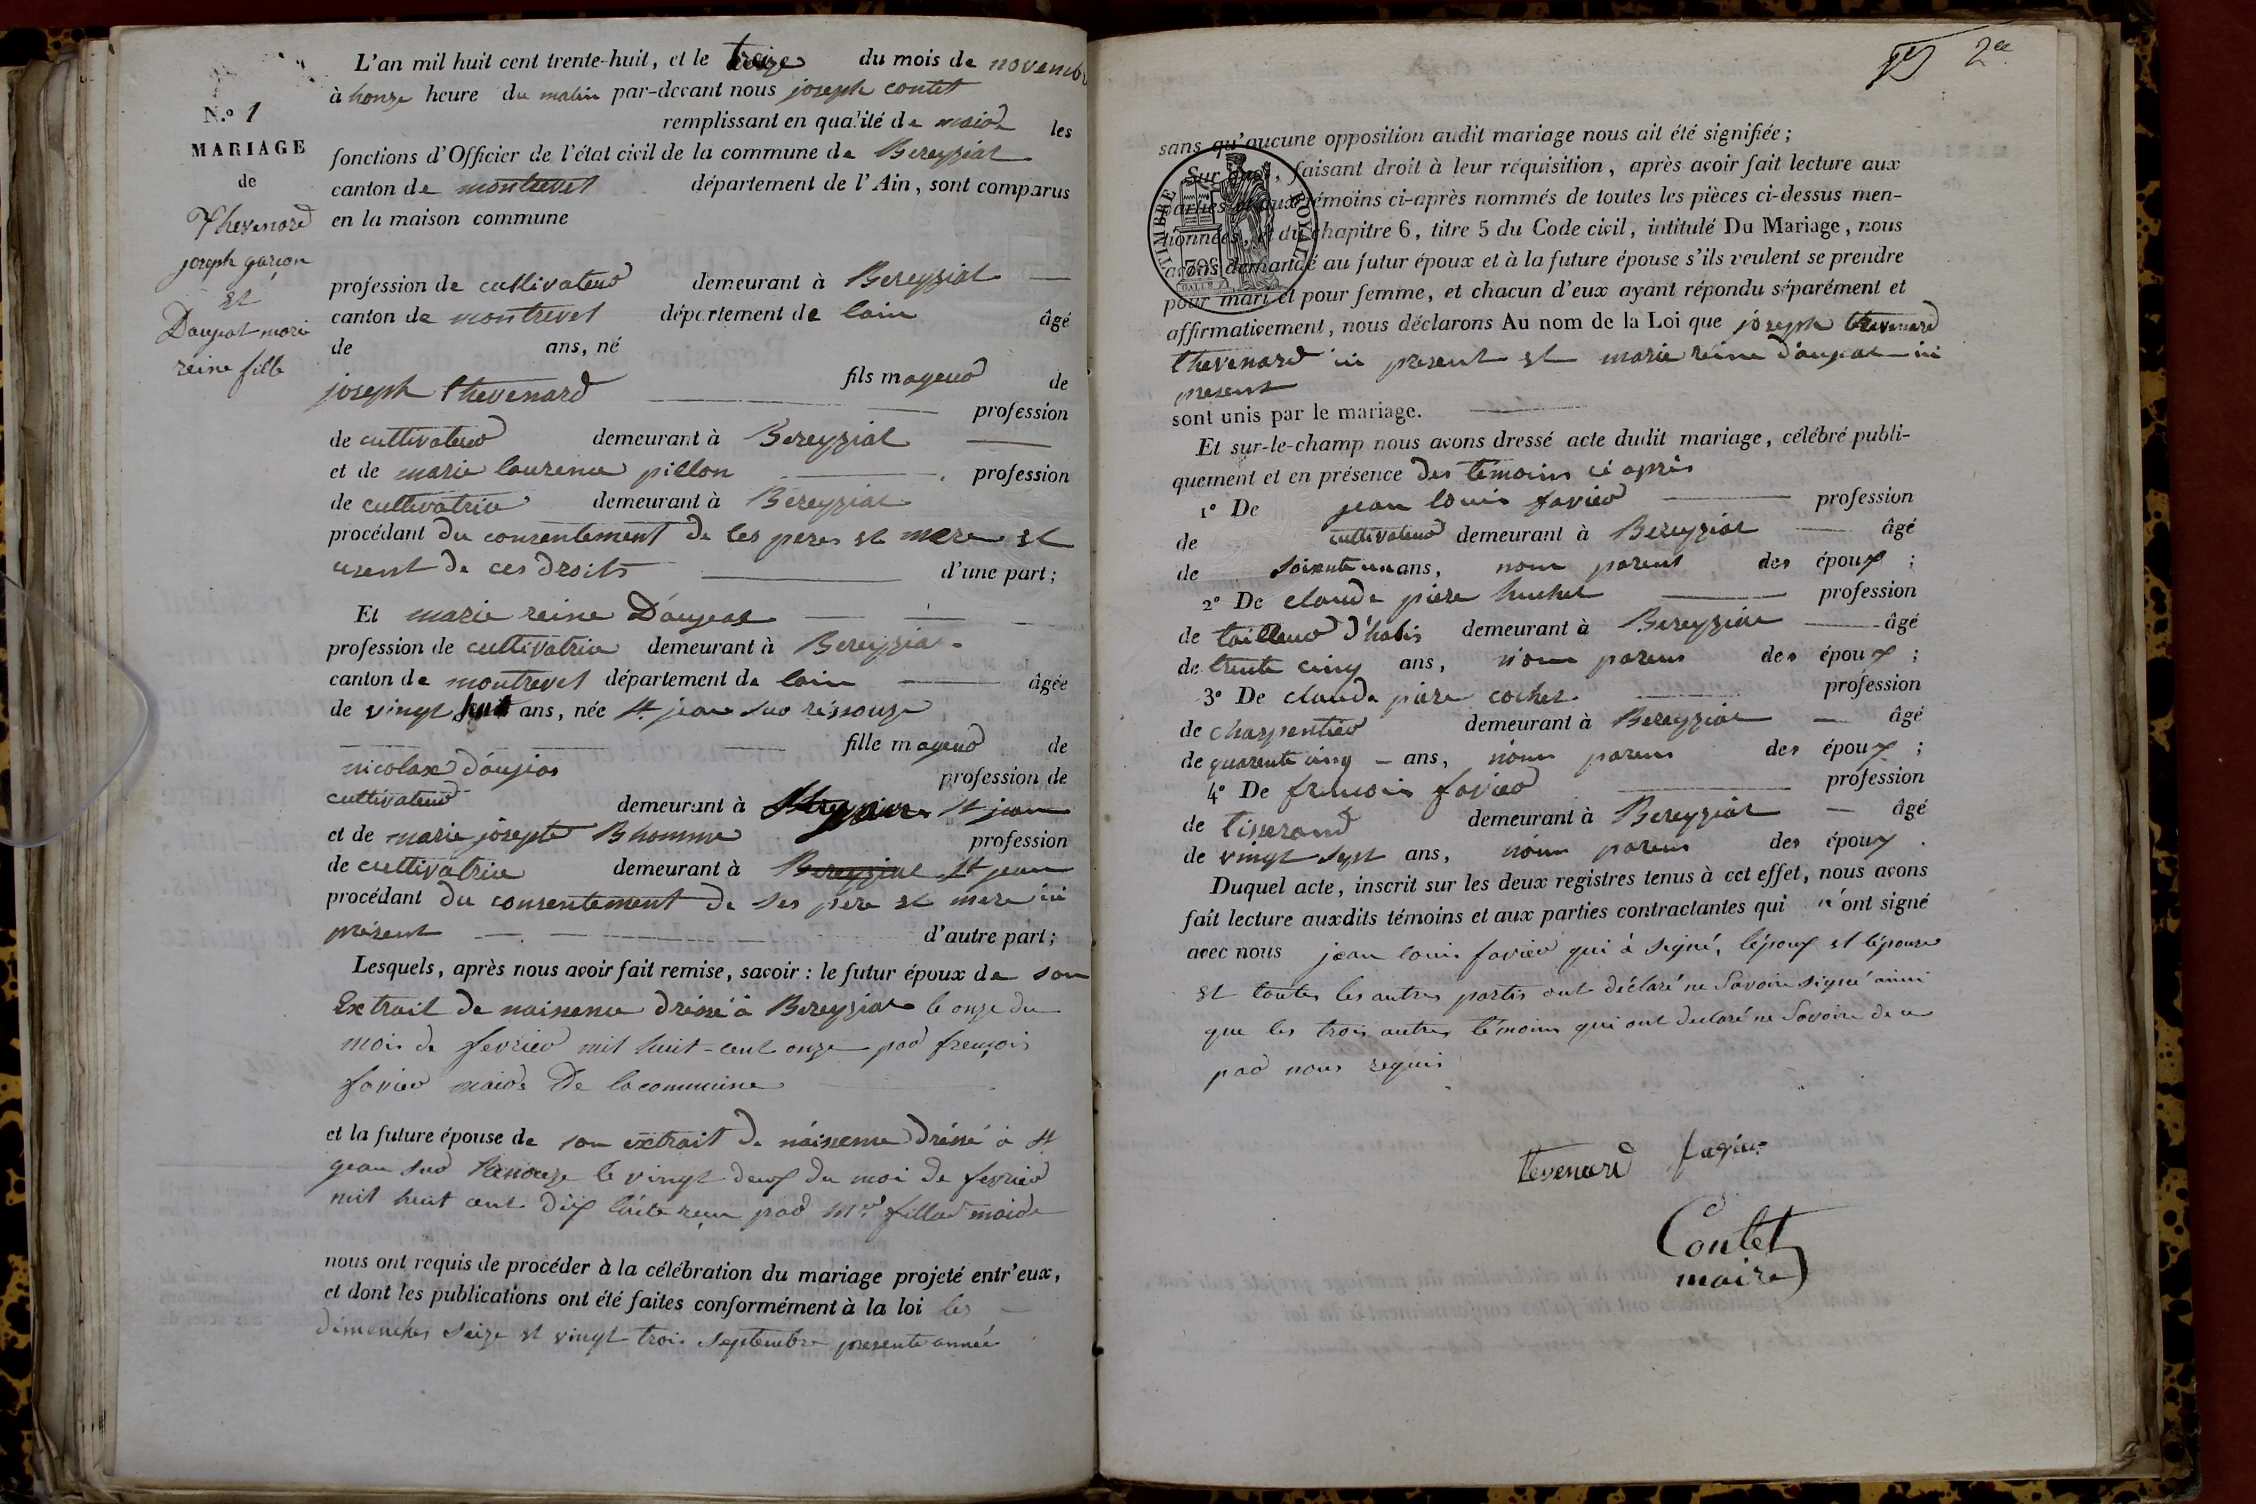 L'an mil huit cent trente-huit, et le treize du mois de novembre
à honze heure du matin par-devant nous joseph contet
remplissant en qualité de maire les
N.º 1
MARIAGE
de
Thevenard
joseph garçon
et
Daujat marie
reine fille
fonctions d'Officier de l'état civil de la commune de Bereyziat
canton de montrevel département de l'Ain, sont comparus
en la maison commune
profession de cultivateur demeurant à Bereyziat
canton de montrevel département de lain âgé
de ans, né
joseph thevenard fils mageur de
profession
de cultivateur demeurant à Bereyziat
et de marie laurence pillon profession
de cultivatrice demeurant à Bereyziat
procédant du consentement de les peres et mere et
usent de ces droits d'une part;
Et marie reine Daujeat
profession de cultivatrice demeurant à Bereyziat
canton de montrevel département de lain âgée
de vingt huit ans, née St jean sur réssouze
fille mageur de
nicolas daujas profession de
cultivateur demeurant à St jean
et de marie josepte Bhomme profession
de cultivatrice demeurant à Bereyziat St jean
procédant du consentement de ses pere et mere ici
présent d'autre part;
Lesquels, après nous avoir fait remise, savoir: le futur époux de son
Extrait de naisence dréssé à Bereyziat le onze du
mois de fevrier mil huit-cent onze par françois
favier maire De la commune
et la future épouse de son extrait de náissence dréssé à St
jean sur Ressouze le vingt deux du moi de fevrier
mil huit cent dix láite reçu par Mr fillod maire
nous ont requis de procéder à la célébration du mariage projeté entr'eux,
et dont les publications ont été faites conformément à la loi les
dimenches seize et vingt trois septembre presente année
2e
sans qu'aucune opposition audit mariage nous ait été signifiée;
Sur quoi, faisant droit à leur réquisition, après avoir fait lecture aux
parties et aux témoins ci-après nommés de toutes les pièces ci-dessus men-
tionnées, et du chapitre 6, titre 5 du Code civil, intitulé Du Mariage, nous
avons demandé au futur époux et à la future épouse s'ils veulent se prendre
pour mari et pour femme, et chacun d'eux ayant répondu séparément et
TIMBRE ROYAL
70c
affirmativement, nous déclarons Au nom de la Loi que joseph thevenard
thevenard ici present et marie reine daujeat ici
present
sont unis par le mariage.
Et sur-le-champ nous avons dressé acte dudit mariage, célébré publi-
quement et en présence des témoins cé après
1º De jean louis favier profession
de cultivateur demeurant à Bereyziat âgé
de soixante un ans, nom parens des époux;
2º De claude piere huchet profession
de tailleur d'habis demeurant à Bereyziat âgé
de trente cinq ans, nom parens des époux;
3º De claude piere cochet profession
de charpentier demeurant à Bereyziat âgé
de quarente cinq ans, nom parens des époux;
4º De françois favier profession
de tisserand demeurant à Bereyziat âgé
de vingt sept ans, nom parens des époux.
Duquel acte, inscrit sur les deux registres tenus à cet effet, nous avons
fait lecture auxdits témoins et aux parties contractantes qui n'ont signé
avec nous jean louis favier qui à signé, lépoux et lépouse
et toutes les autres partis ont déclaré ne Savoir signé ainsi
que les trois autres témoins qui ont declaré ne Savoir de ce
par nous requis
tevenard favier
Contet
maire